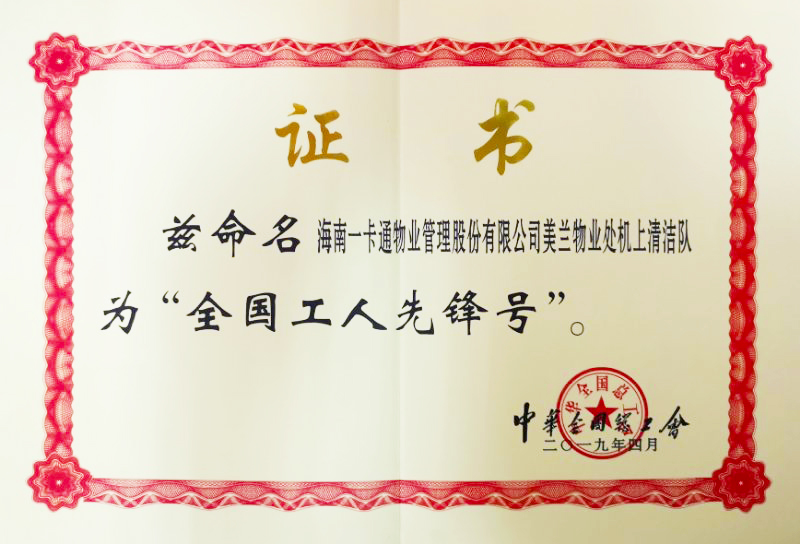 证 书
兹命名 海南一卡通物业管理股份有限公司美兰物业处机上清洁队
为“全国工人先锋号”。
中华全国总工
中華全國總工會
二〇一九年四月